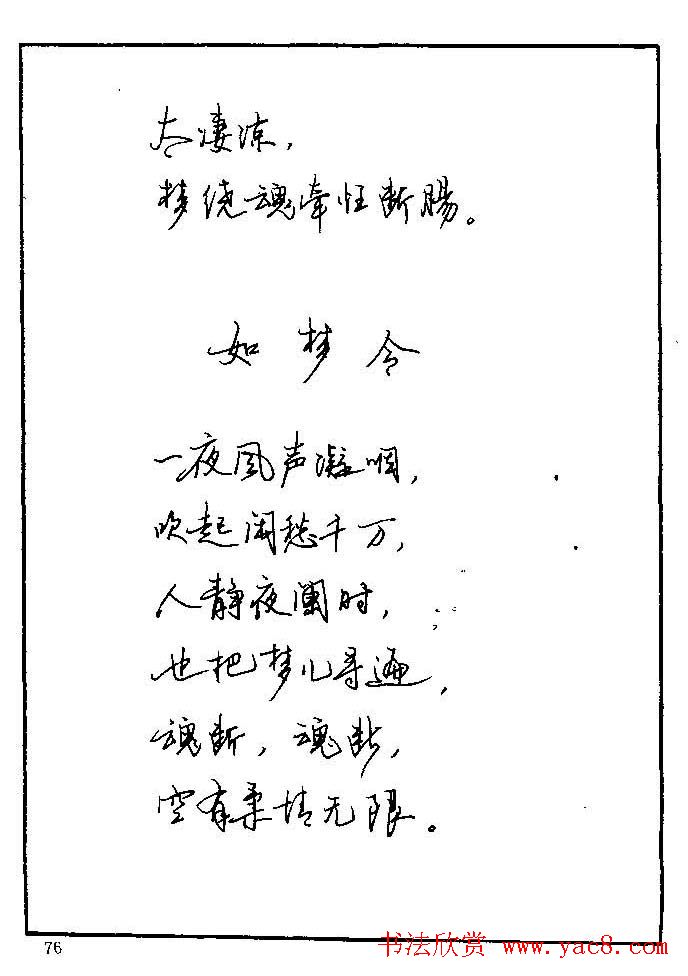 太凄凉，
梦绕魂牵枉断肠。
如梦令
一夜风声凝咽，
吹起闲愁千万，
人静夜阑时，
也把梦儿寻遍，
魂断，魂断，
空有柔情无限。
76
书法欣赏 www.yac8.com